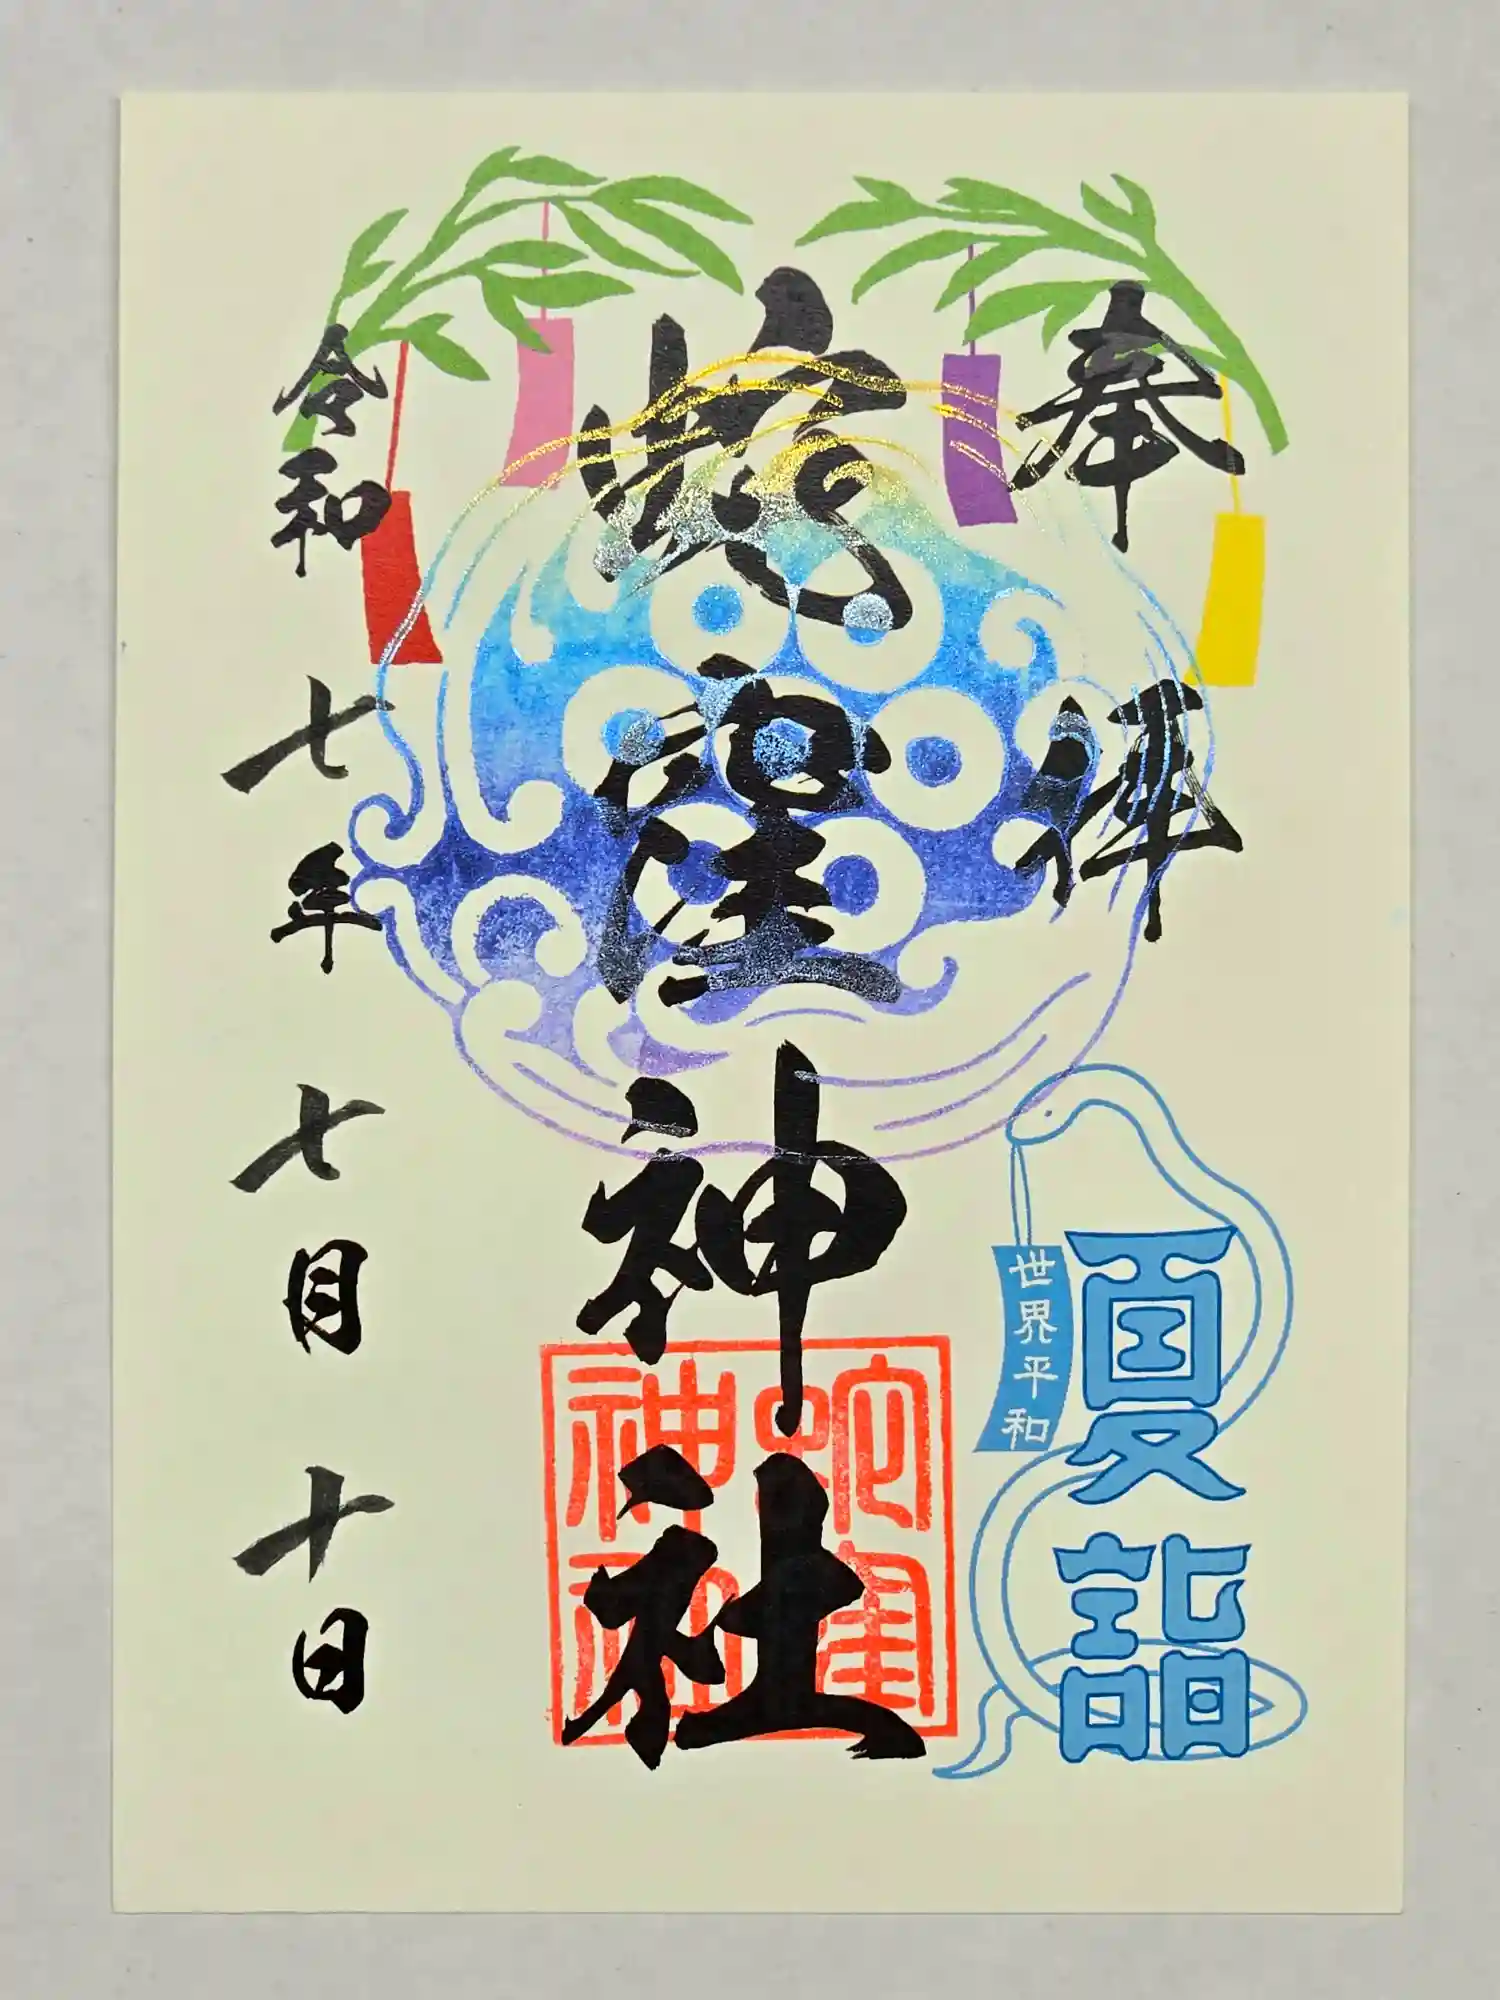 奉拝
夏詣
世界平和
蛇窪神社
蛇窪神社
令和七年七月十日